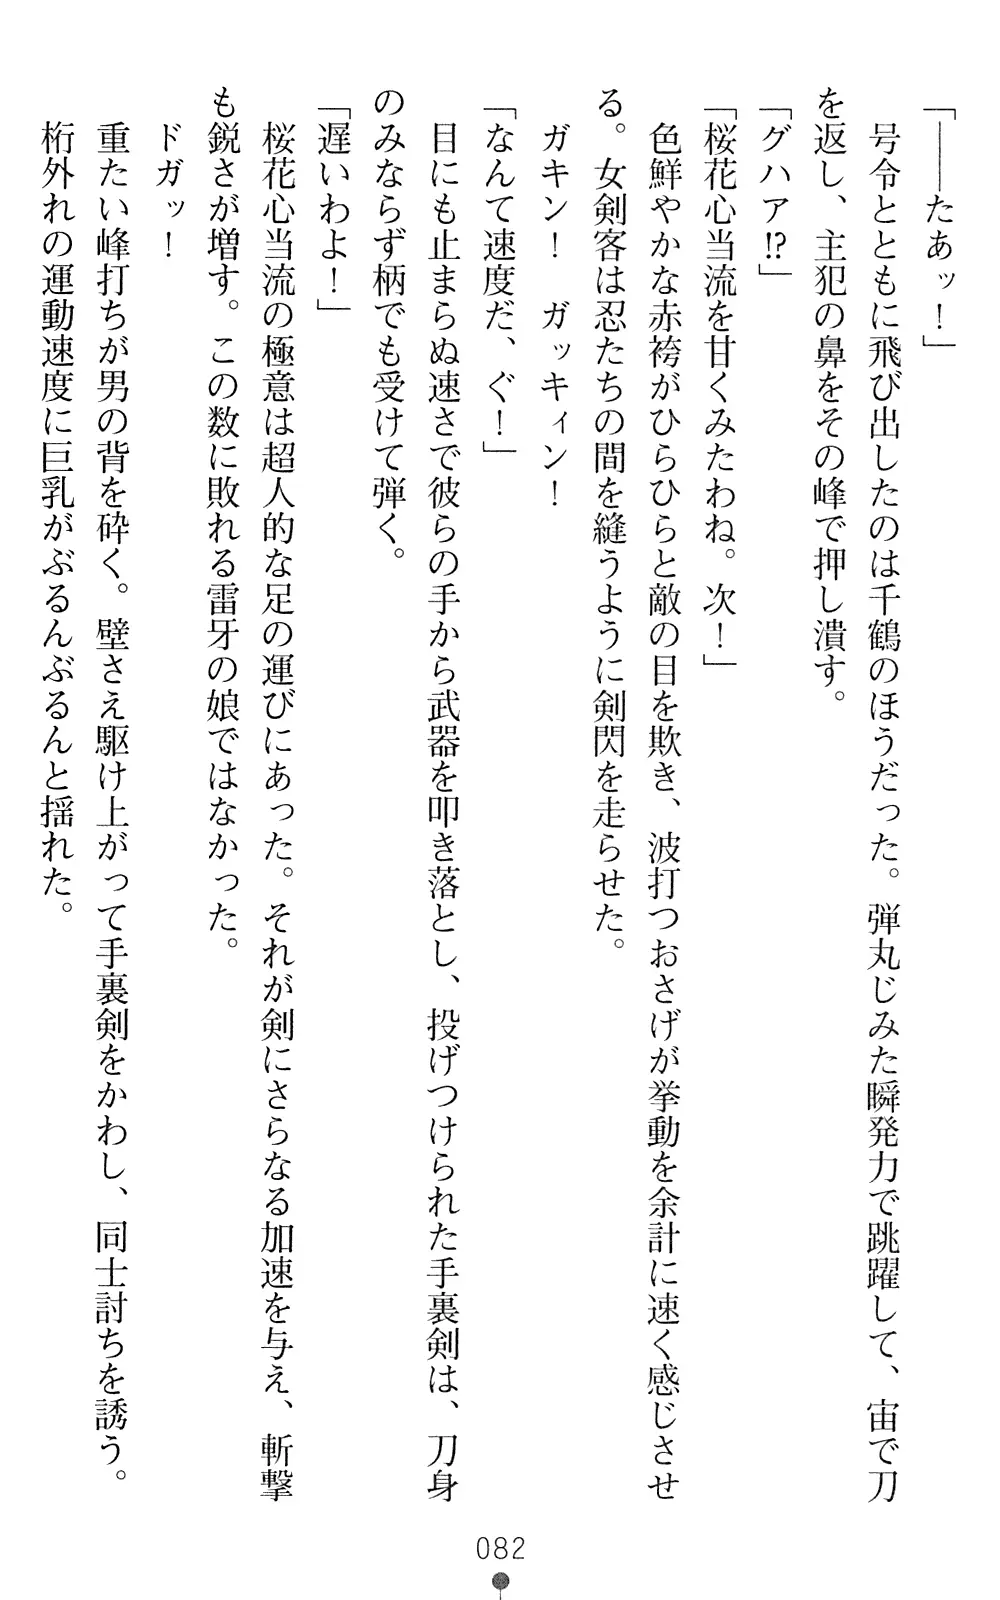 「――たあッ！」
　号令とともに飛び出したのは千鶴のほうだった。弾丸じみた瞬発力で跳躍して、宙で刀
を返し、主犯の鼻をその峰で押し潰す。
「グハア!?」
「桜花心当流を甘くみたわね。次！」
　色鮮やかな赤袴がひらひらと敵の目を欺き、波打つおさげが挙動を余計に速く感じさせ
る。女剣客は忍たちの間を縫うように剣閃を走らせた。
　ガキン！　ガッキィン！
「なんて速度だ、ぐ！」
　目にも止まらぬ速さで彼らの手から武器を叩き落とし、投げつけられた手裏剣は、刀身
のみならず柄でも受けて弾く。
「遅いわよ！」
　桜花心当流の極意は超人的な足の運びにあった。それが剣にさらなる加速を与え、斬撃
も鋭さが増す。この数に敗れる雷牙の娘ではなかった。
　ドガッ！
　重たい峰打ちが男の背を砕く。壁さえ駆け上がって手裏剣をかわし、同士討ちを誘う。
　桁外れの運動速度に巨乳がぶるんぶるんと揺れた。
082